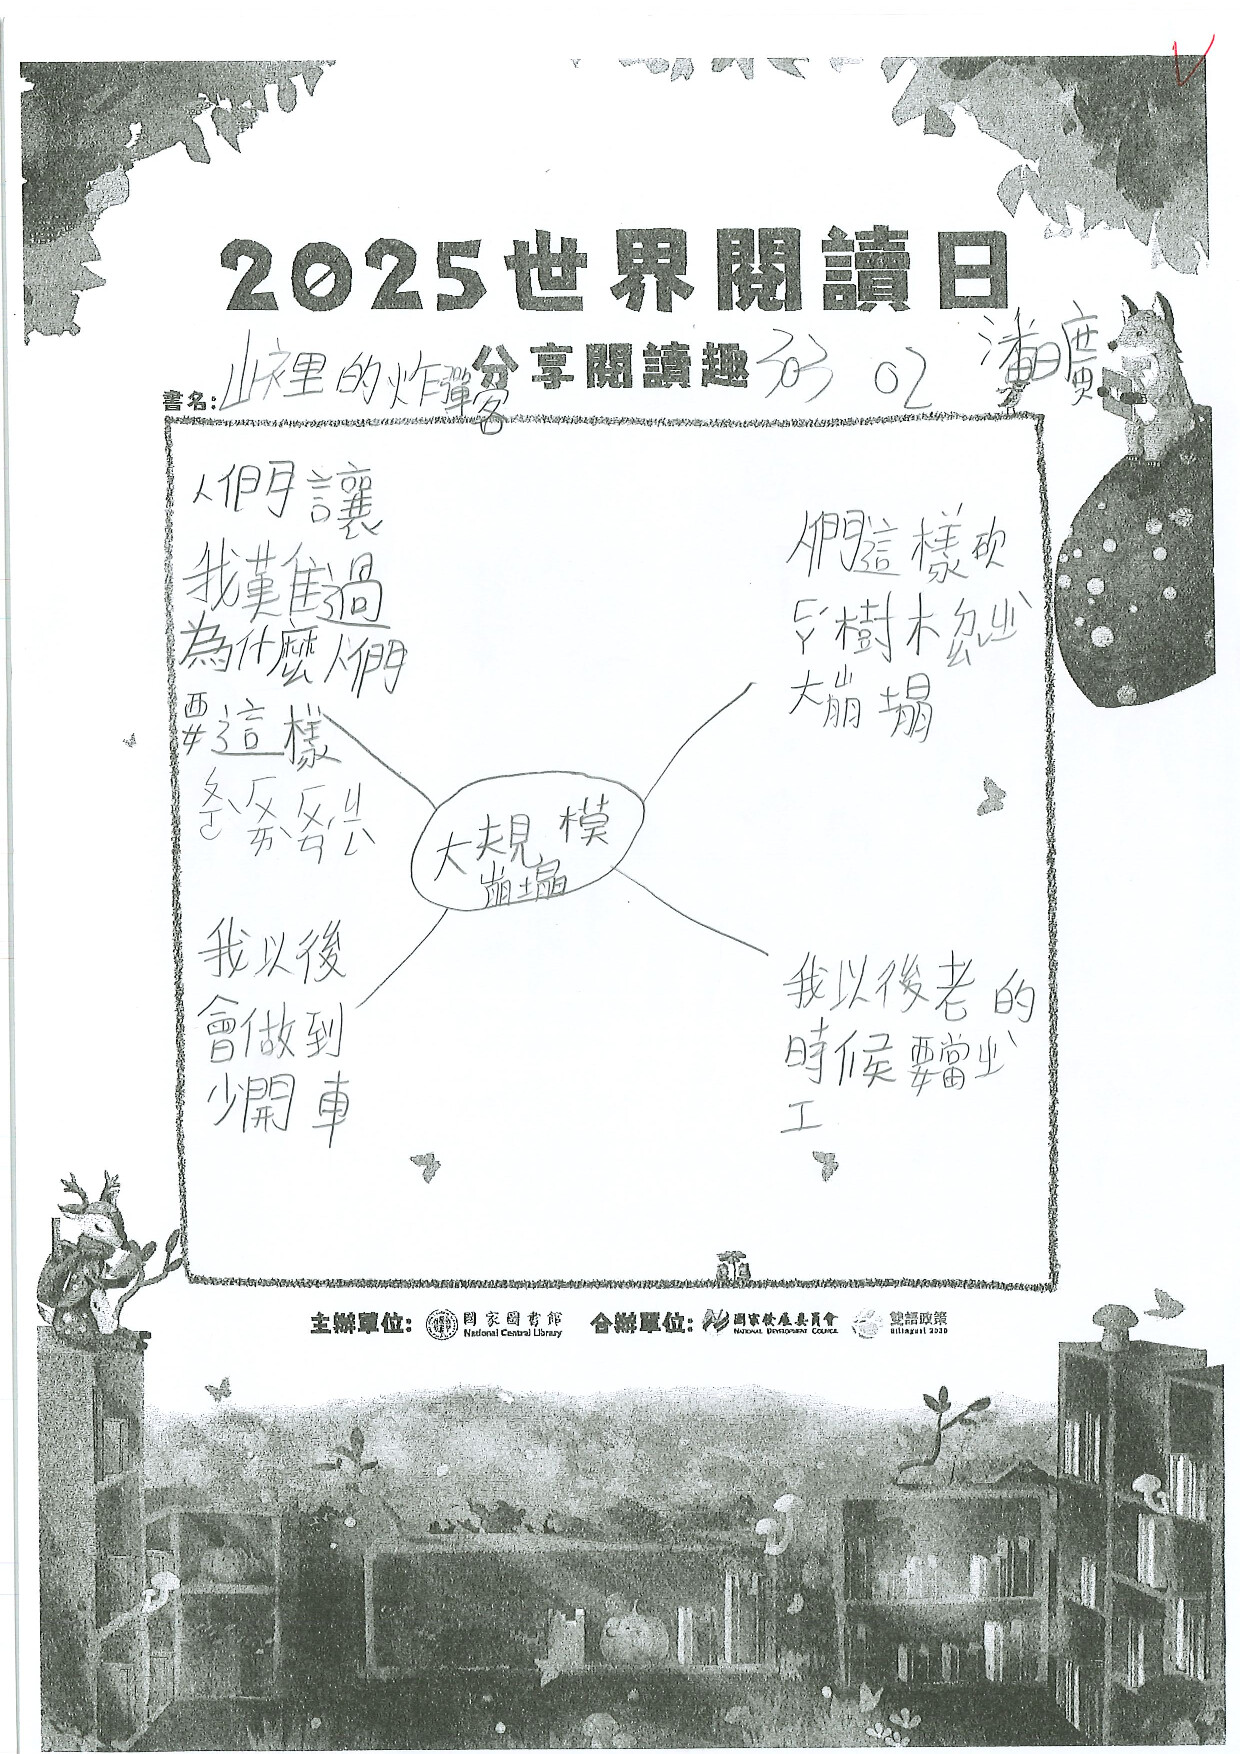 2025世界閱讀日
分享閱讀趣
303 02 潘日廣
書名:山裡的炸彈客
人們讓
我難過
為什麼人們
要這樣
人們這樣砍
ㄈㄚˊ樹木忽ㄓˋ
大崩塌
大規模
崩塌
我以後
會做到
少開車
我以後老的
時候要當ㄓˋ
工
主辦單位: 國家圖書館 合辦單位: 國家發展委員會 雙語政策
National Central Library NATIONAL DEVELOPMENT COUNCIL Bilingual 2030